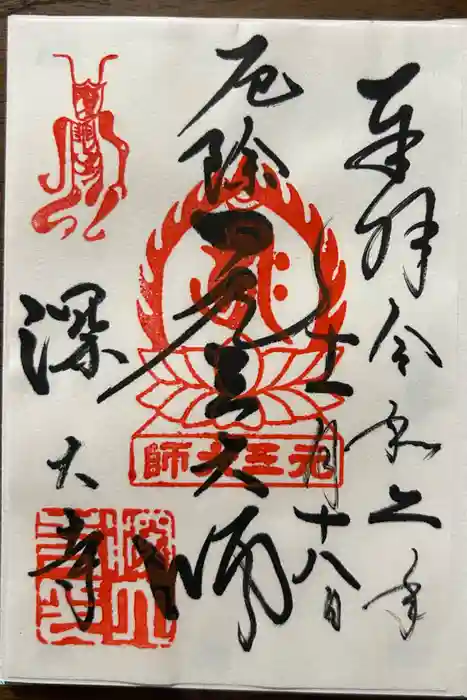 奉拝 令和 年
十一月十八日
厄除元三大師
元三大師
深大寺